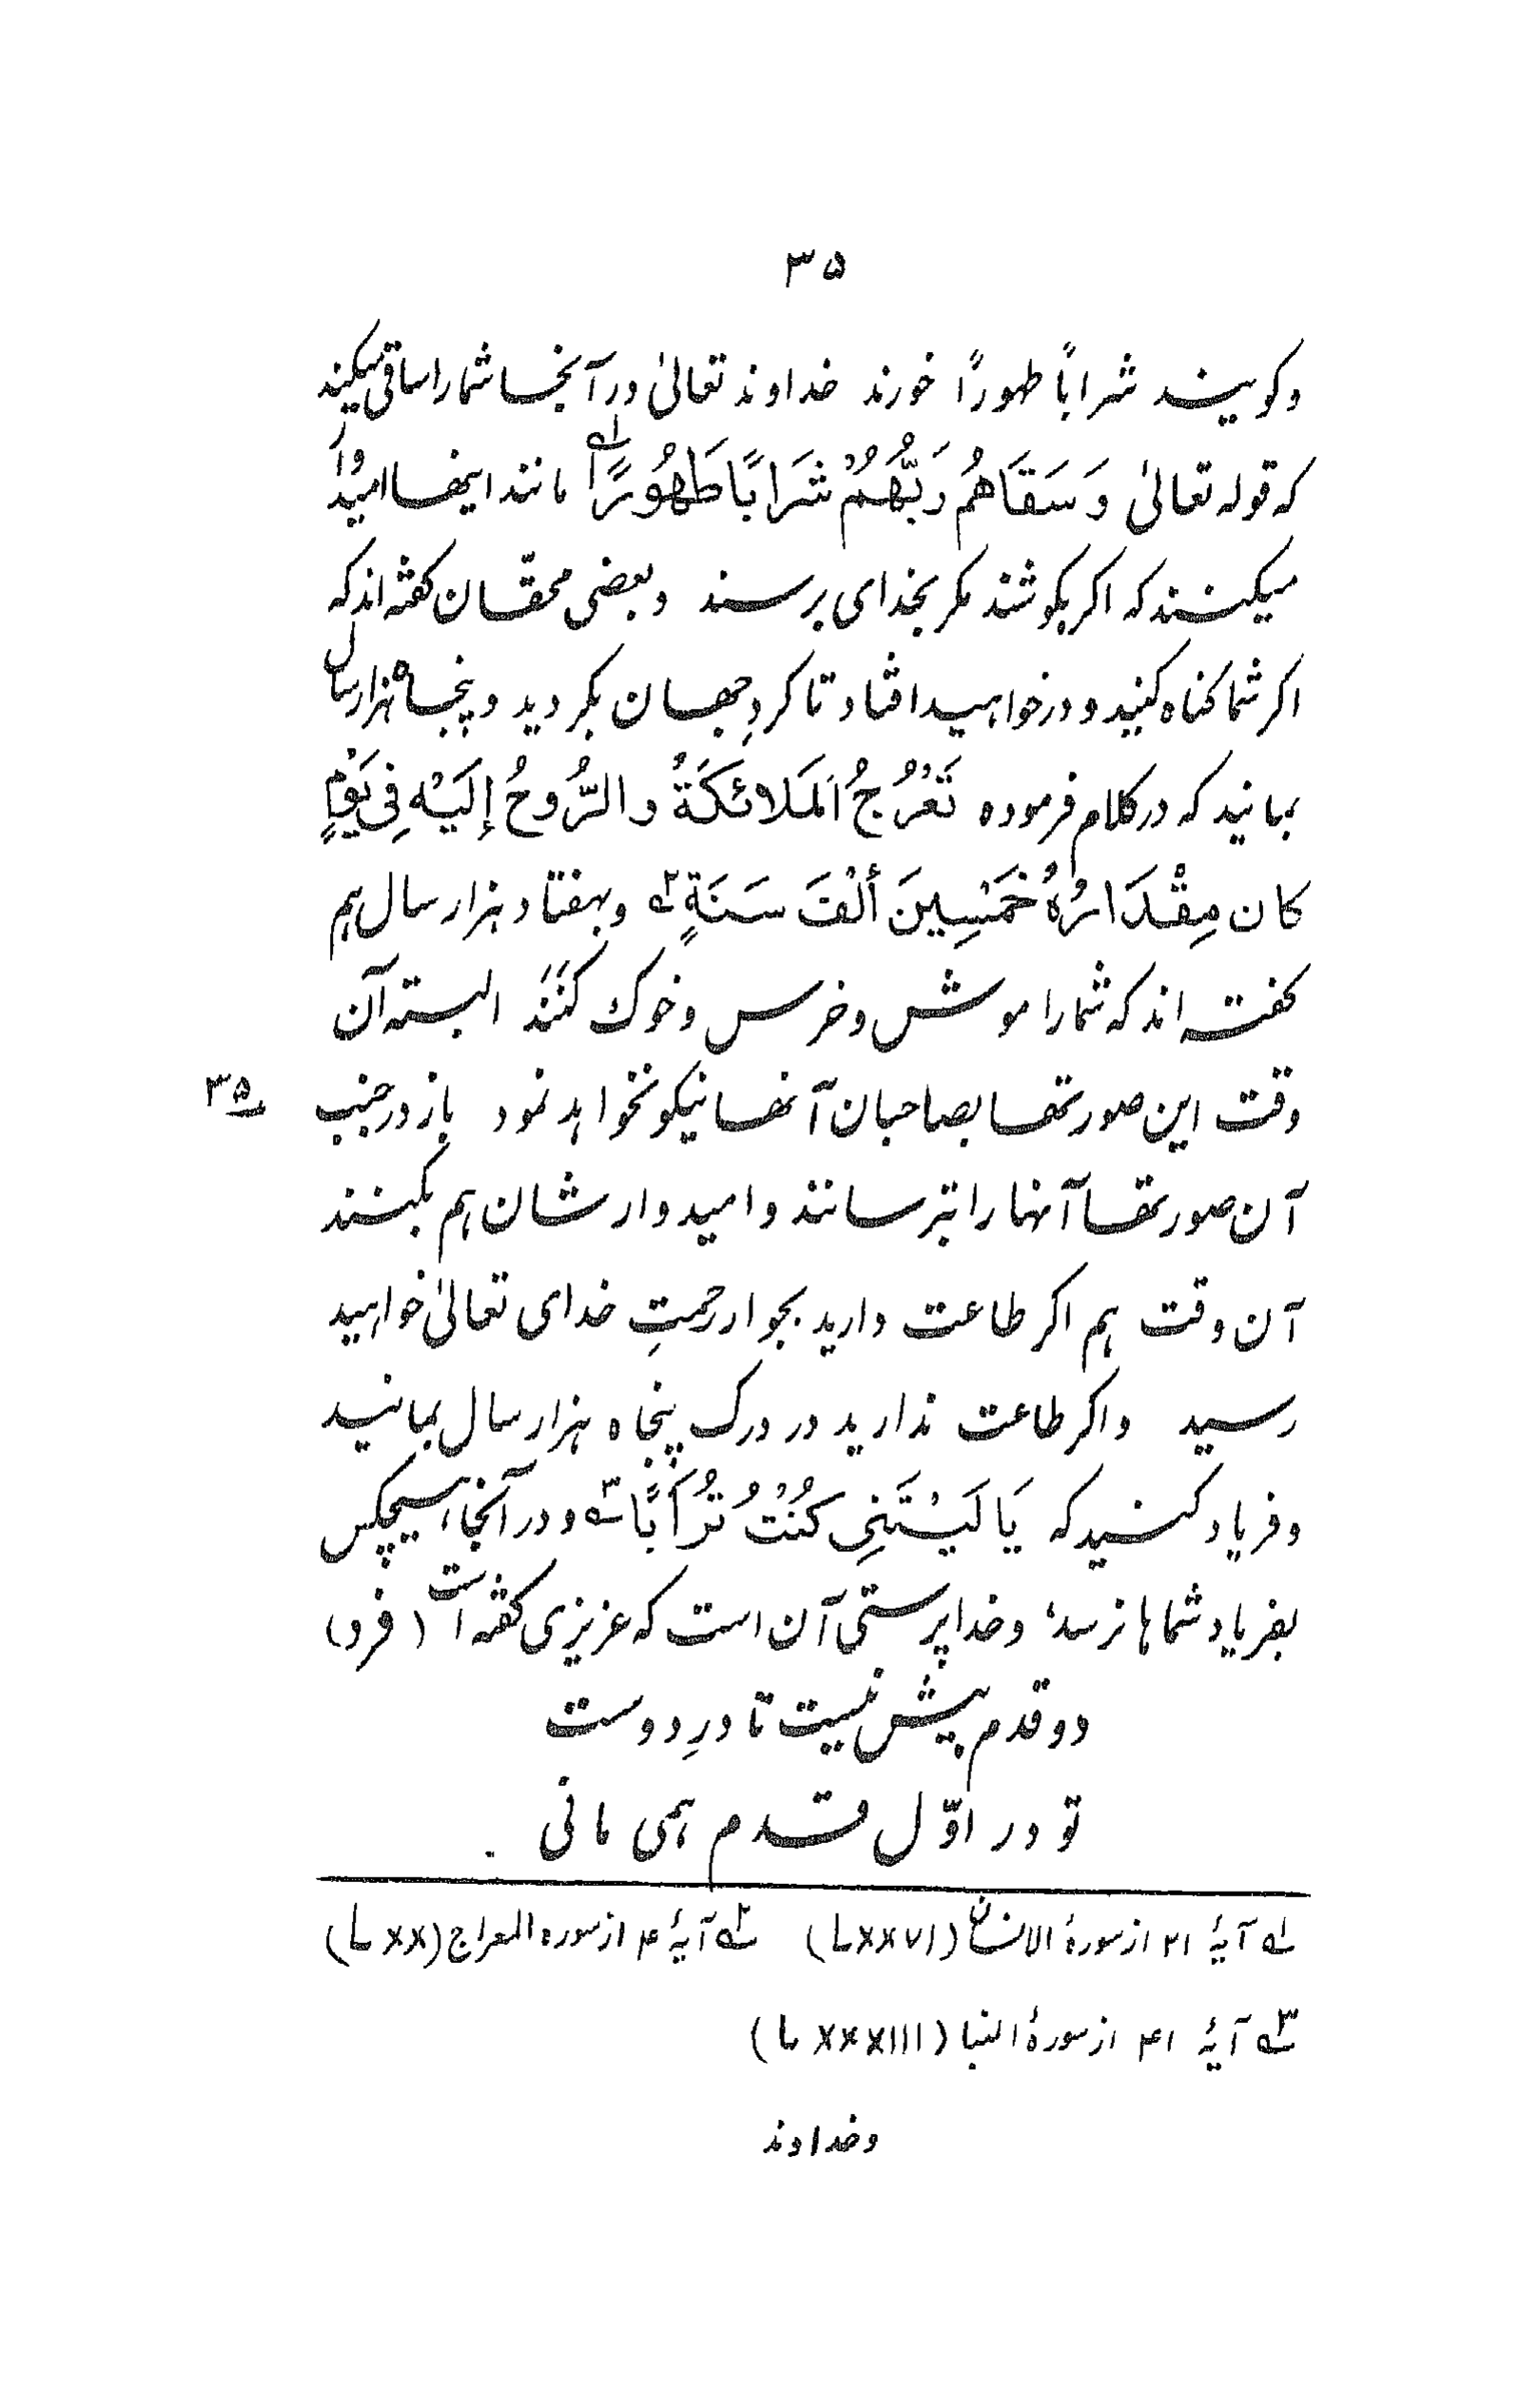 ۳۵
وکویند شراباً طهوراً خورند خداوند تعالیٰ در آنجا شما را ساقی میکند
که قوله تعالیٰ وَسَقَاهُم رَبُّهُمْ شَرَابًا طَهُورًا ۱؎ مانند اینها امیدوار
میکنند که اکر بکوشند مکر بخدای برسند وبعضی محقّان کفته اند که
اکر شما کناه کنید و درخواهید افتاد تا کردِ جهان بکردید و پنجاه هزار سال
بمانید که در کلام فرموده تَعْرُجُ اَلمَلائکَةُ والرُّوحُ إلَیْهِ فِی یَوْمٍ
کان مِقْدَارُهُ خَمْسِینَ ألْفَ سَنَةٍ ۲؎ وبهفتاد هزار سال هم
کفته اند که شما را موش و خرس و خوک کنَنَد البته آن
وقت این صورتها بصاحبان آنها نیکو نخواهد نمود باز در جنب ۳۵
آن صورتها آنها را بترسانند و امیدوارشان هم بکنند
آن وقت هم اکر طاعت دارید بجوار رحمتِ خدای تعالیٰ خواهید
رسید واکر طاعت ندارید در درک پنجاه هزار سال بمانید
وفریاد کنید که یَا لَیْتَنِی کُنْتُ تُرَابًا ۳؎ و در آنجا، هیچکس
بفریاد شماها نرسد، و خدا پرستی آن است که عزیزی کفته است (فرد)
دو قدم پیش نیست تا درِ دوست
تو در اوّل قدم همی مانی .
۱؎ آیهٔ ۲۱ از سورهٔ الانسان (LXXVI) ۲؎ آیهٔ ۴ از سوره المعراج (LXX)
۳؎ آیهٔ ۴۱ از سورهٔ النبا (LXXXIII)
وخداوند